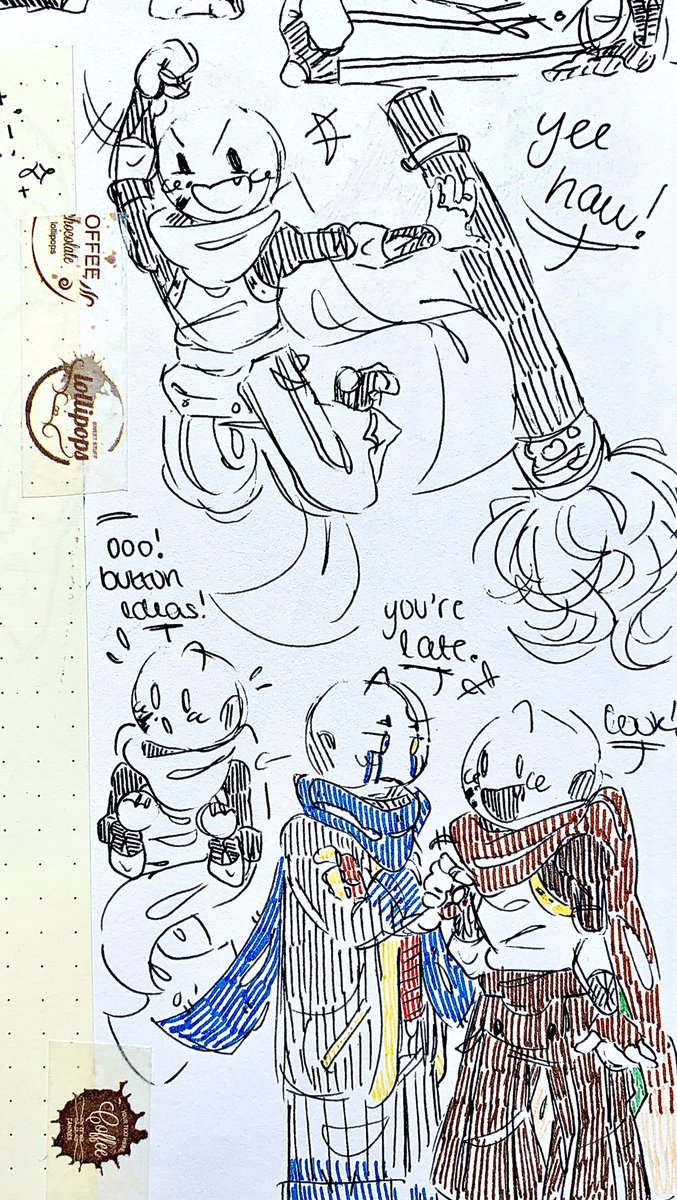 yee
haw!
OFFEE
chocolate
lollipops
lollipops
SWEET STUFF
ooo!
button
ideas!
you're
late.
look!
Coffee